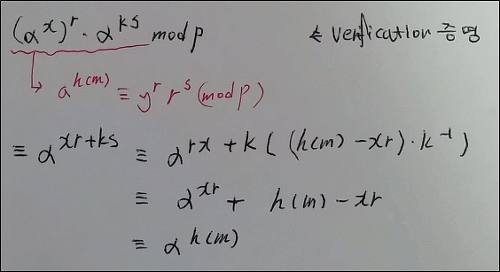 (α^x)^r · α^ks mod p ← Verification 증명
↳ a^h(m) ≡ y^r r^s (mod p)
≡ α^xr+ks ≡ α^rx + k ( (h(m) - xr) · k^-1 )
≡ α^xr + h(m) - xr
≡ α^h(m)